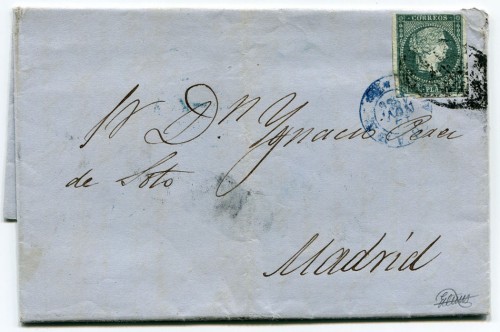 CORREOS
Sr. Dn. Ygnacio Perez
de Soto
Madrid